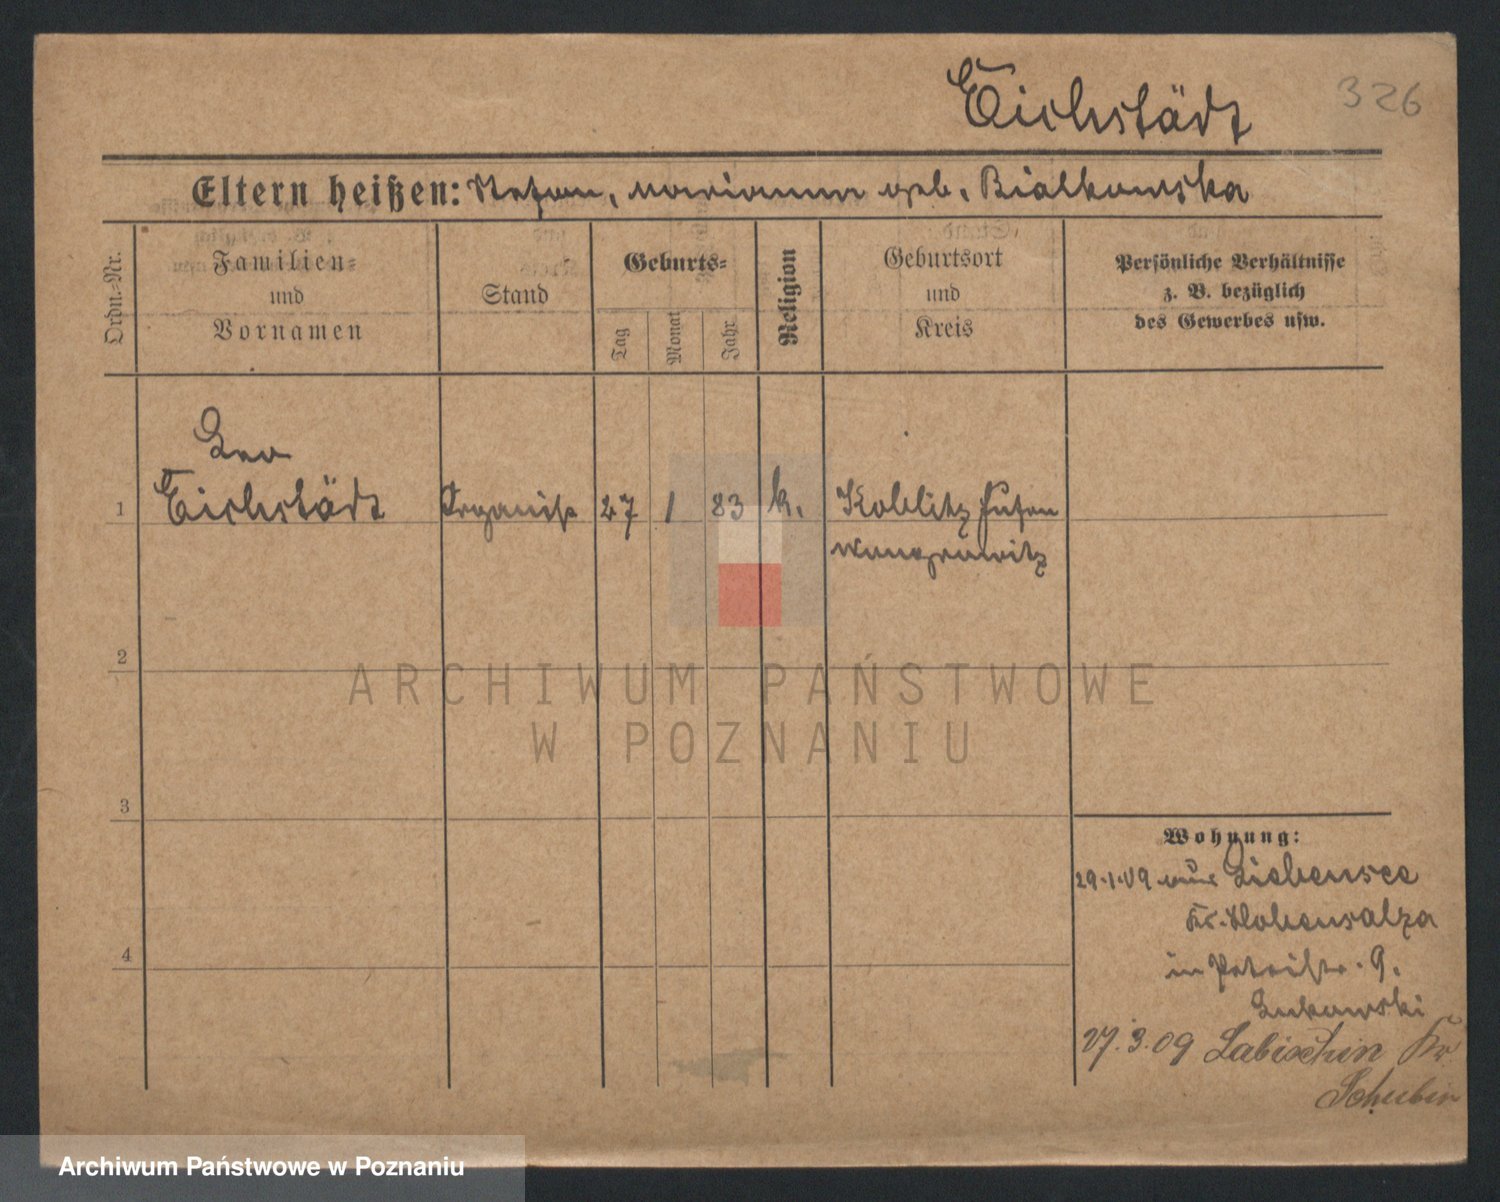 Eichstädt
326
Eltern heißen: Stefan, Marianna geb. Bialkowska
Ordn.-Nr.
Familien-
und
Vornamen
Stand
Geburts-
Tag
Monat
Jahr
Religion
Geburtsort
und
Kreis
Persönliche Verhältnisse
z. B. bezüglich
des Gewerbes usw.
Leo
1 Eichstädt Organist 27 1 83 k.
Wongrowitz
2
ARCHIWUM PAŃSTWOWE
W POZNANIU
3
Wohnung:
29.1.09 aus Liebensee
Kr. Hohensalza
in Petristr. 9.
Lukowski
4
27.3.09 Labischin Kr.
Schubin
Archiwum Państwowe w Poznaniu